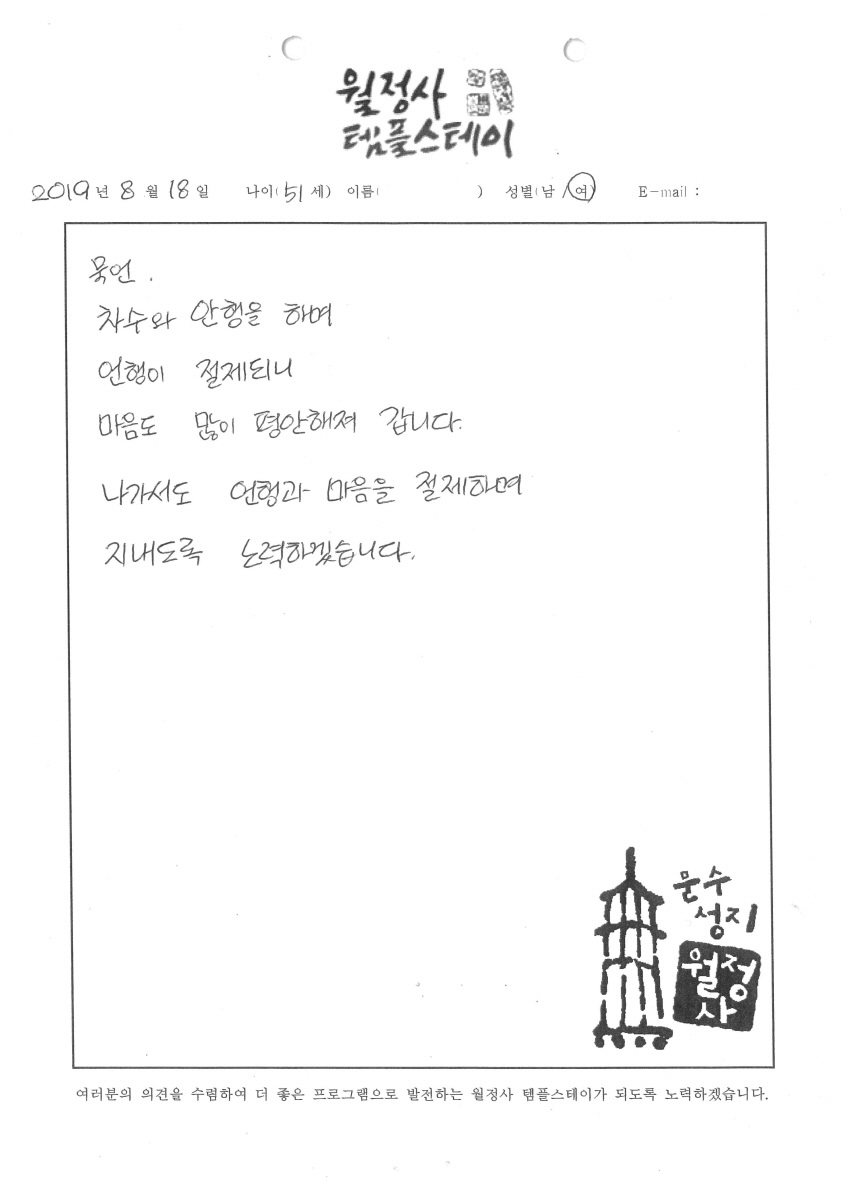 월정사
템플스테이
2019년 8월 18일 나이(51세) 이름( ) 성별(남/여) E-mail :
묵언.
차수와 안행을 하며
언행이 절제되니
마음도 많이 평안해져 갑니다.
나가서도 언행과 마음을 절제하며
지내도록 노력하겠습니다.
문수
성지
월정
사
여러분의 의견을 수렴하여 더 좋은 프로그램으로 발전하는 월정사 템플스테이가 되도록 노력하겠습니다.